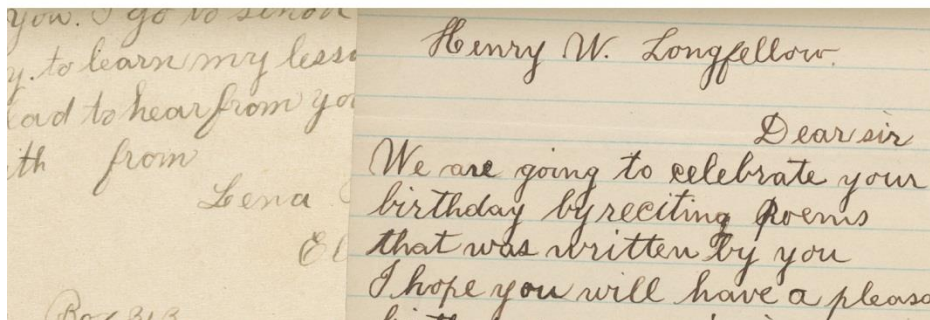 you. I go to school
y. to learn my less
lad to hear from you
ith from
Lena
El
Box 313
Henry W. Longfellow.
Dear sir
We are going to celebrate your
birthday by reciting Poems
that was written by you
I hope you will have a pleasa